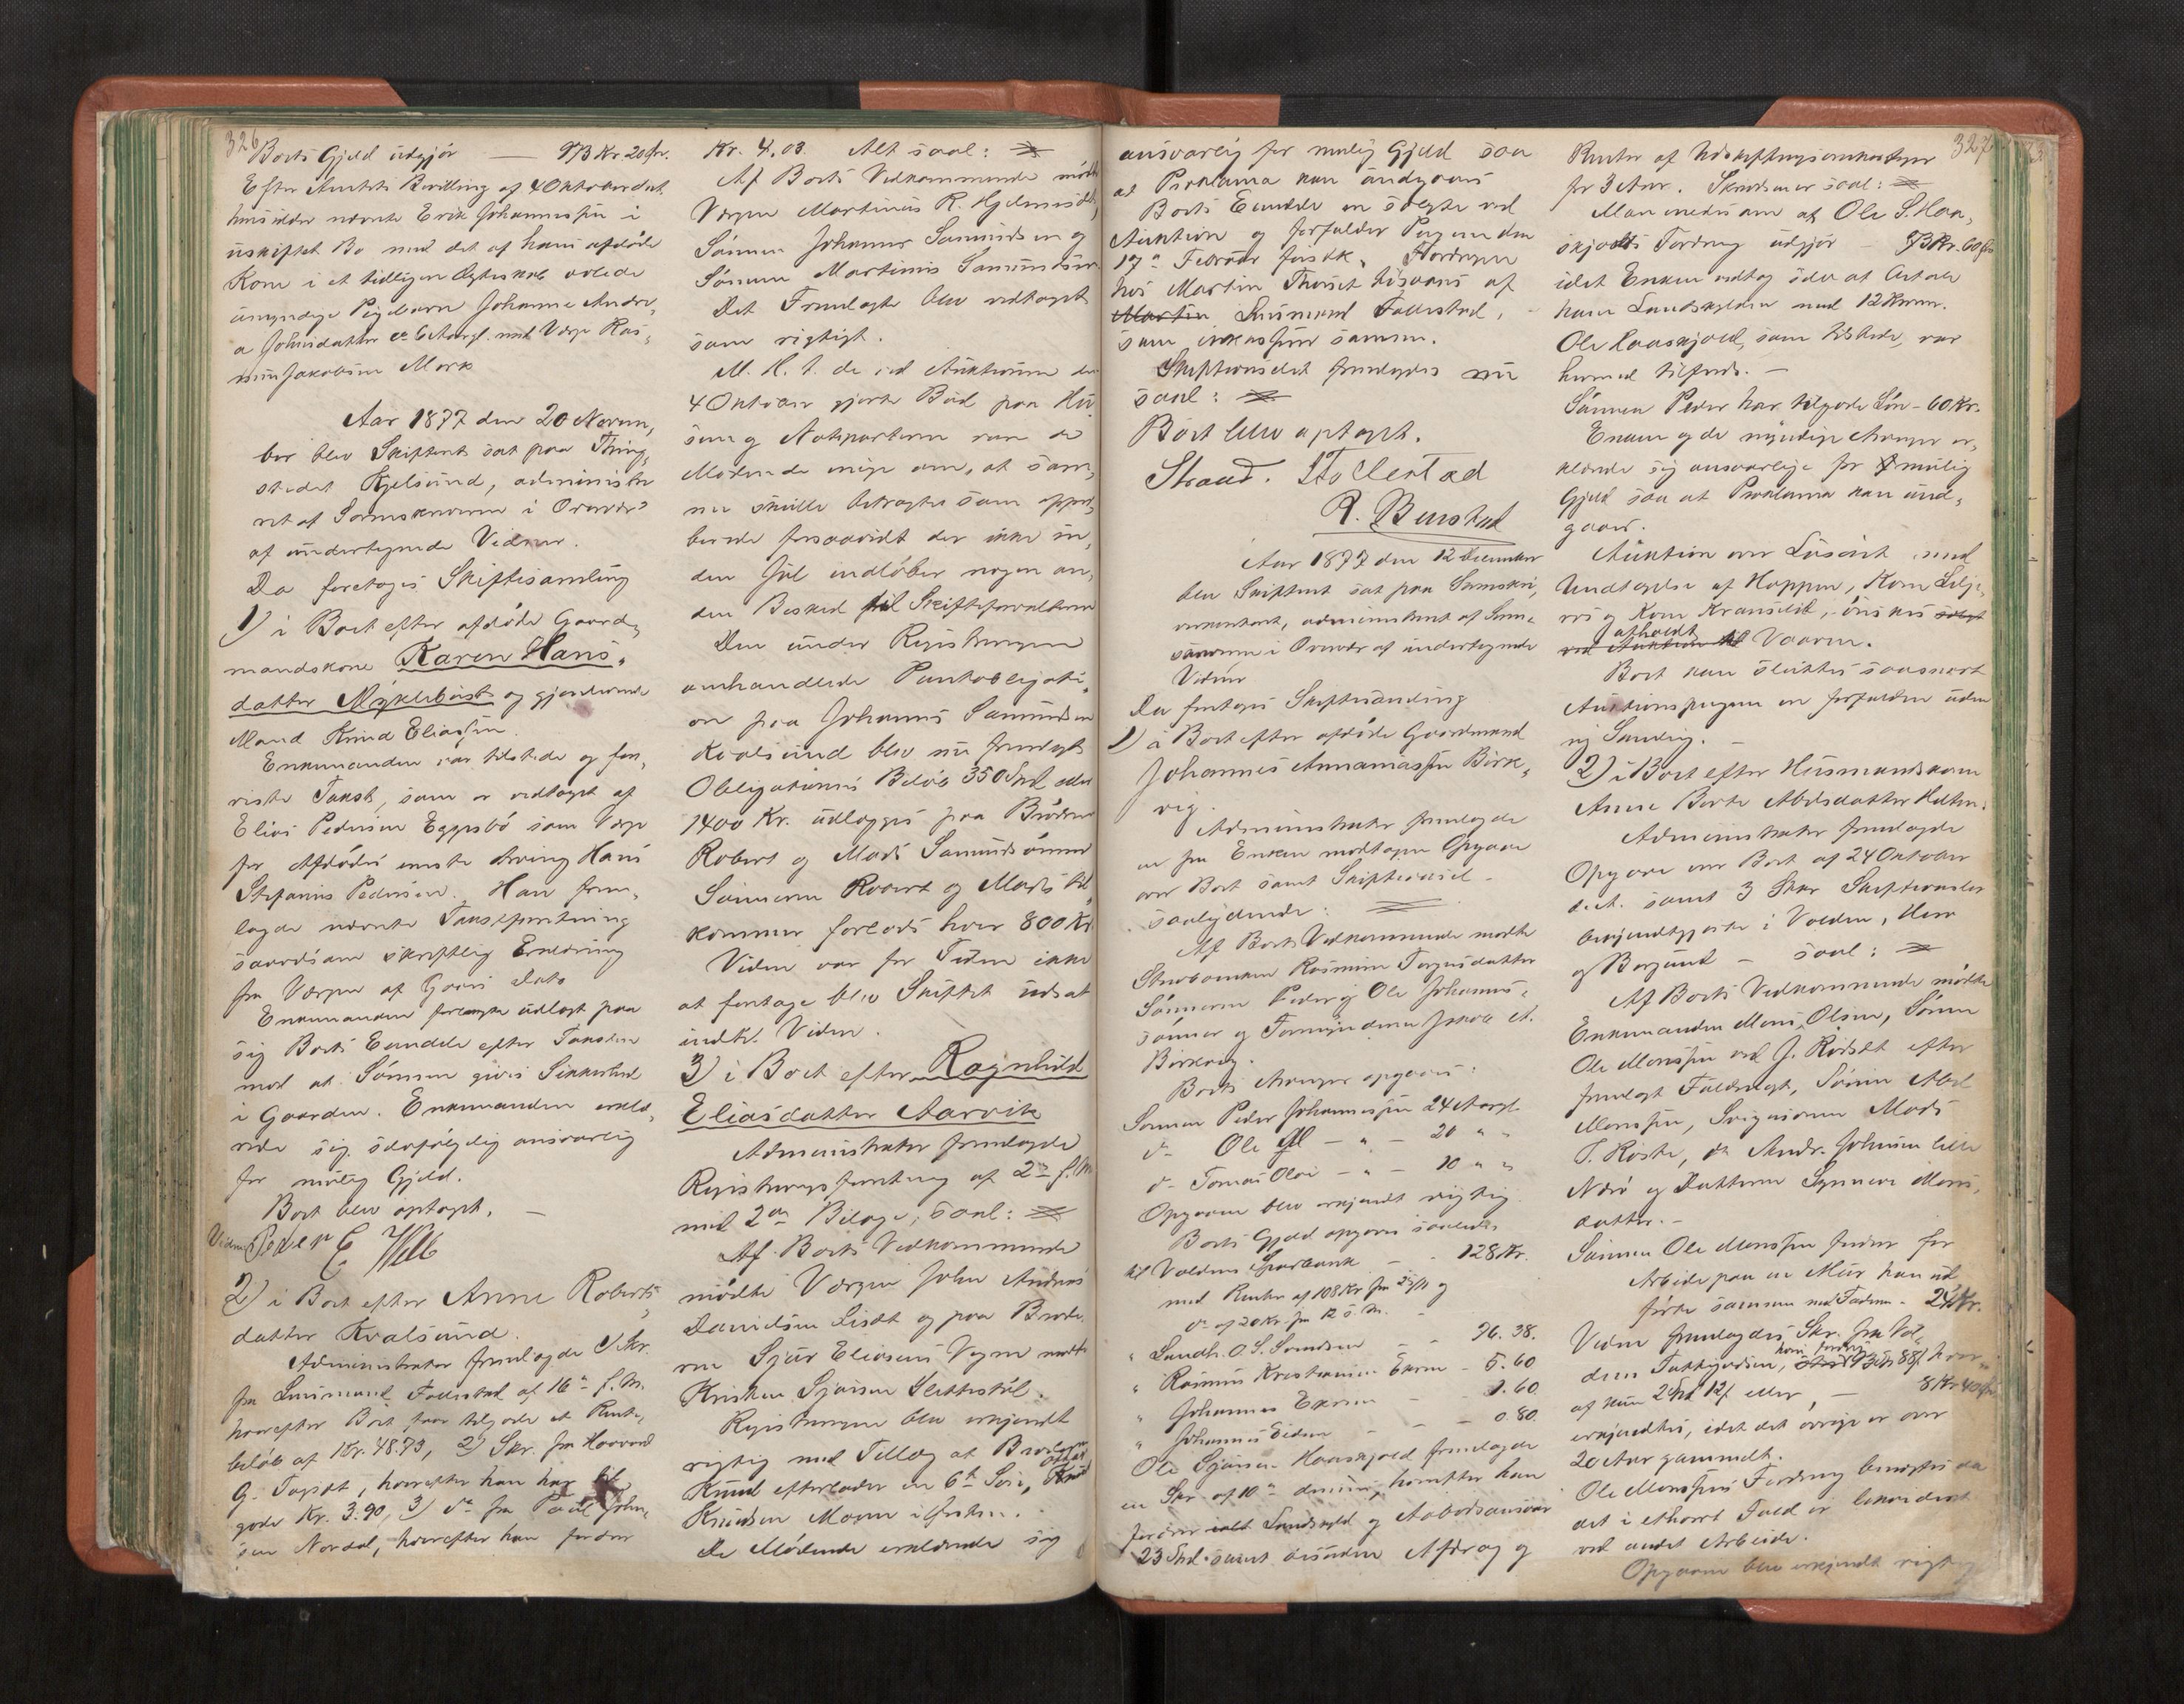 326
Boets Gjeld udgjør — 973 Kr. 20 Øre.
Efter Amtets Bevilling af 4 Oktober d.A.
hensidder nævnte Erik Johannessen i
uskiftet Bo med det af hans afdøde
Kone i et tidligere Ægteskab avlede
umyndige Pigebarn Johanne Andre-
a Johnsdatter ca 6 Aar gl. med Værge Ras-
mus Jakobsen Mork
Aar 1877 den 20 Novem-
ber blev Skifteret sat paa Thing-
stedet Kjelsund, administre-
ret af Sorenskriveren i Overvær
af undertegnede Vidner.
Da foretoges Skiftesamling
1) i Boet efter afdøde Gaard-
mandskone Karen Hans-
datter Myklebust og gjenlevende
Mand Knud Eliassen.
Enkemanden var tilstede og fore-
viste Takst, som er vedtaget af
Elias Pedersen Eggesbø som Værge
for Afdødes eneste Arving Hans
Stefanus Pedersen. Han frem-
lagde nævnte Takstforretning
saavelsom skriftlig Erklæring
fra Værgen af Gaars Dato
Enkemanden forlangte udlagt paa
sig Boets Eiendele efter Taksten
mod at Sønnen gives Sikkerhed
i Gaarden. Enkemanden erklæ-
rede sig selvfølgelig ansvarlig
for mulig Gjeld.
Boet blev optaget. —
Vidner Peder E Welle
2) i Boet efter Anne Roberts-
datter Kvalsund.
Administrator fremlagde Skr.
fra Lensmand Follestad af 16de f.M.
hvorefter Boet har tilgode et Rente-
beløb af Kr. 48.73, 2) Skr. fra Haavard
G. Tarjet, hvorefter han har til-
gode Kr. 3.90, 3) do fra Paul John-
sen Nordal, hvorefter han fordrer
Kr. 4.03. Alt saal:
Af Boets Vedkommende mødte
Værgen Martinus R. Hjelmeset,
Sønnen Johannes Samundsen og
Sønnen Martinus Samundsen
Det Fremlagte blev vedtaget
som rigtigt.
M. H. t. de ved Auktionen den
4 Oktober gjorte Bud paa Hu-
sene og Notparten var de
Mødende enige om, at sam-
me skulle betragtes som appro-
berede forsaavidt der ikke in-
den Jul indløber nogen an-
den Besked til Skifteforvalteren
Den under Registreringen
omhandlede Pantobligati-
on fra Johannes Samundsen
Kvalsund blev nu fremlagt
Obligationens Beløb 350 Spd. eller
1400 Kr. udlægges paa Brødrene
Robert og Mads Samundsønner
Sønnerne Robert og Mads til-
kommer forlods hver 800 Kr.
Videre var for Tiden ikke
at foretage blev Skiftet udsat
indtil Videre.
3) i Boet efter Ragnhild
Eliasdatter Aarvik
Administrator fremlagde
Registreringsforretning af 2den f.M
med 2de Bilage, saal:
Af Boets Vedkommende
mødte Værgen John Andreas
Danielsen Liset og paa Brode-
ren Sjur Eliasens Vegne mødte
Kristen Sjursen Slettestøl.
Registreringen blev erkjendt
rigtig med Tillæg at Broderen
Knud efterlader en 6te Søn,
Knudsen Moen i Ørsten.
De Mødende erklærede sig
ansvarlig for mulig Gjeld saa
at Proklama kan undgaaes
Boets Eiendele er solgte ved
Auktion og forfalder Pengene den
17de Februar førstk. Fordringen
hos Martin Thuset tilsvares af
Martin Lensmand Follestad,
som inkasserer samme.
Skifteudlæg fremlagdes nu
saal:
Boet blev optaget.
Strand. Stollestad
R. Benstad
Aar 1877 den 12 December
blev Skifteret sat paa Sorenskri-
verkontoret, administreret af Soren-
skriveren i Overvær af undertegnede
Vidner
Da foretoges Skiftesamling
1) i Boet efter afdøde Gaardmand
Johannes Annaniassen Birke-
vig.
Administrator fremlagde
en fra Enken modtagen Opgave
over Boet samt Skiftevarsel —
saalydende:
Af Boets Vedkommende mødte
Stervboenken Rasmine Torgersdatter
Sønnerne Peder og Ole Johannes-
sønner og Formynderen Jakob A.
Birkevig.
Boets Arvinger opgaves:
Sønnen Peder Johannessen 24 Aar gl.
do Ole — " — 20 " "
do Tomas Olai — " — 10 " "
Opgaven blev erkjendt rigtig
Boets Gjeld opgaves saaledes
til Voldens Sparebank — 128 Kr.
med Renter af 108 Kr. fra 25/11 og
do af 20 Kr. fra 12 s.M. —
" Landh. O. S. Svendsen — — 96.38.
" Rasmus Kristiansen Ekren — 5.60
" Johannes Ekren — 1.60.
" Johannes Eidem — — 0.80.
Ole Sjursen Haaskjold fremlagde
en Skr. af 10de dennes, hvorefter han
fordrer ialt Landskyld og Aabodsansvar
23 Spd. samt desuden Afdrag og
327
Renter af Udskiftningsomkostninger
for 3 Aar. Skrivelsen er saal:
Man enedes om at Ole S. Haa-
skjolds Fordring udgjør — 93 Kr. 60 Øre
idet Enken vedtog siden at betale
ham Landskylden med 12 Kroner.
Ole Haaskjold, som tilstede, var
hermed tilfreds. —
Sønnen Peder har tilgode Løn — 60 Kr.
Enken og de myndige Arvinger er-
klærede sig ansvarlige for mulig
Gjeld saa at Proklama kan und-
gaaes.
Auktion over Løsøret med
Undtagelse af Hoppen, Koen Lilje-
ros og Koen Kranselid, ønskes solgt
afholdt
ved Auktion til Vaaren.
Boet kan sluttes saasnart
Auktionspengene er forfaldne uden
ny Samling. —
2) i Boet efter Husmandskone
Anne Berte Abelsdatter
Administrator fremlagde
Opgave over Boet af 24 Oktober
d.A. samt 3 Skr Skiftevarsler
bekjendtgjorte i Volden, Herø
og Borgund — saal:
Af Boets Vedkommende mødte
Enkemanden Mons Olsen, Sønnen
Ole Monssen ved J. Rødset efter
fremlagt Fuldmagt, Sønnen Abel
Monssen, Svigersønnen Mads
T. Røste, do Andr. Johnsen lille
Nærø og Datteren Synneve Mons-
datter. —
Sønnen Ole Monssen fordrer for
Arbeide paa en Mur han ud-
førte sammen med Faderen — 24 Kr.
Videre fremlagdes Skr. fra Vol-
dens Fattigvæsen,
af kun 2 Spd 12 s eller — 8 Kr 40 Øre
erkjendtes, idet det øvrige er over
20 Aar gammelt.
Ole Monssens Fordring benegtes da
det i ethvert Fald er likvideret
ved andet Arbeide.
Opgaven blev erkjendt rigtig